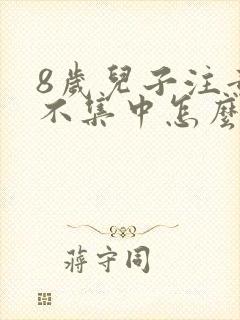 8歲兒子注意
不集中怎麼
蔣守同